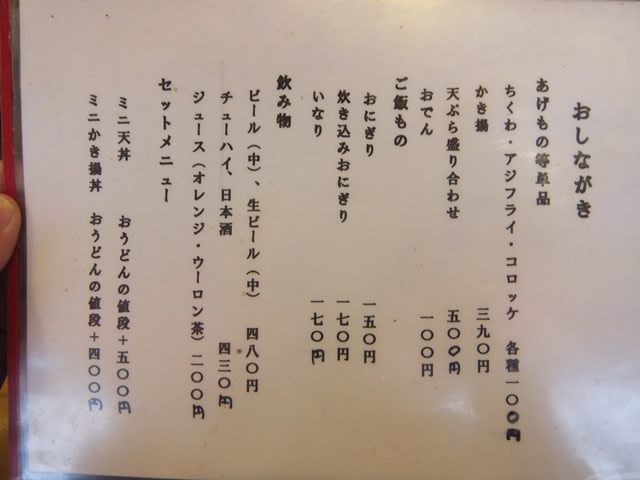 おしながき
あげもの等単品
ちくわ・アジフライ・コロッケ　各種一〇〇円
かき揚　三九〇円
天ぷら盛り合わせ　五〇〇円
おでん　一〇〇円
ご飯もの
おにぎり　一五〇円
炊き込みおにぎり　一七〇円
いなり　一七〇円
飲み物
ビール（中）、生ビール（中）　四八〇円
チューハイ、日本酒　四三〇円
ジュース（オレンジ・ウーロン茶）二〇〇円
セットメニュー
ミニ天丼　おうどんの値段＋五〇〇円
ミニかき揚丼　おうどんの値段＋四〇〇円